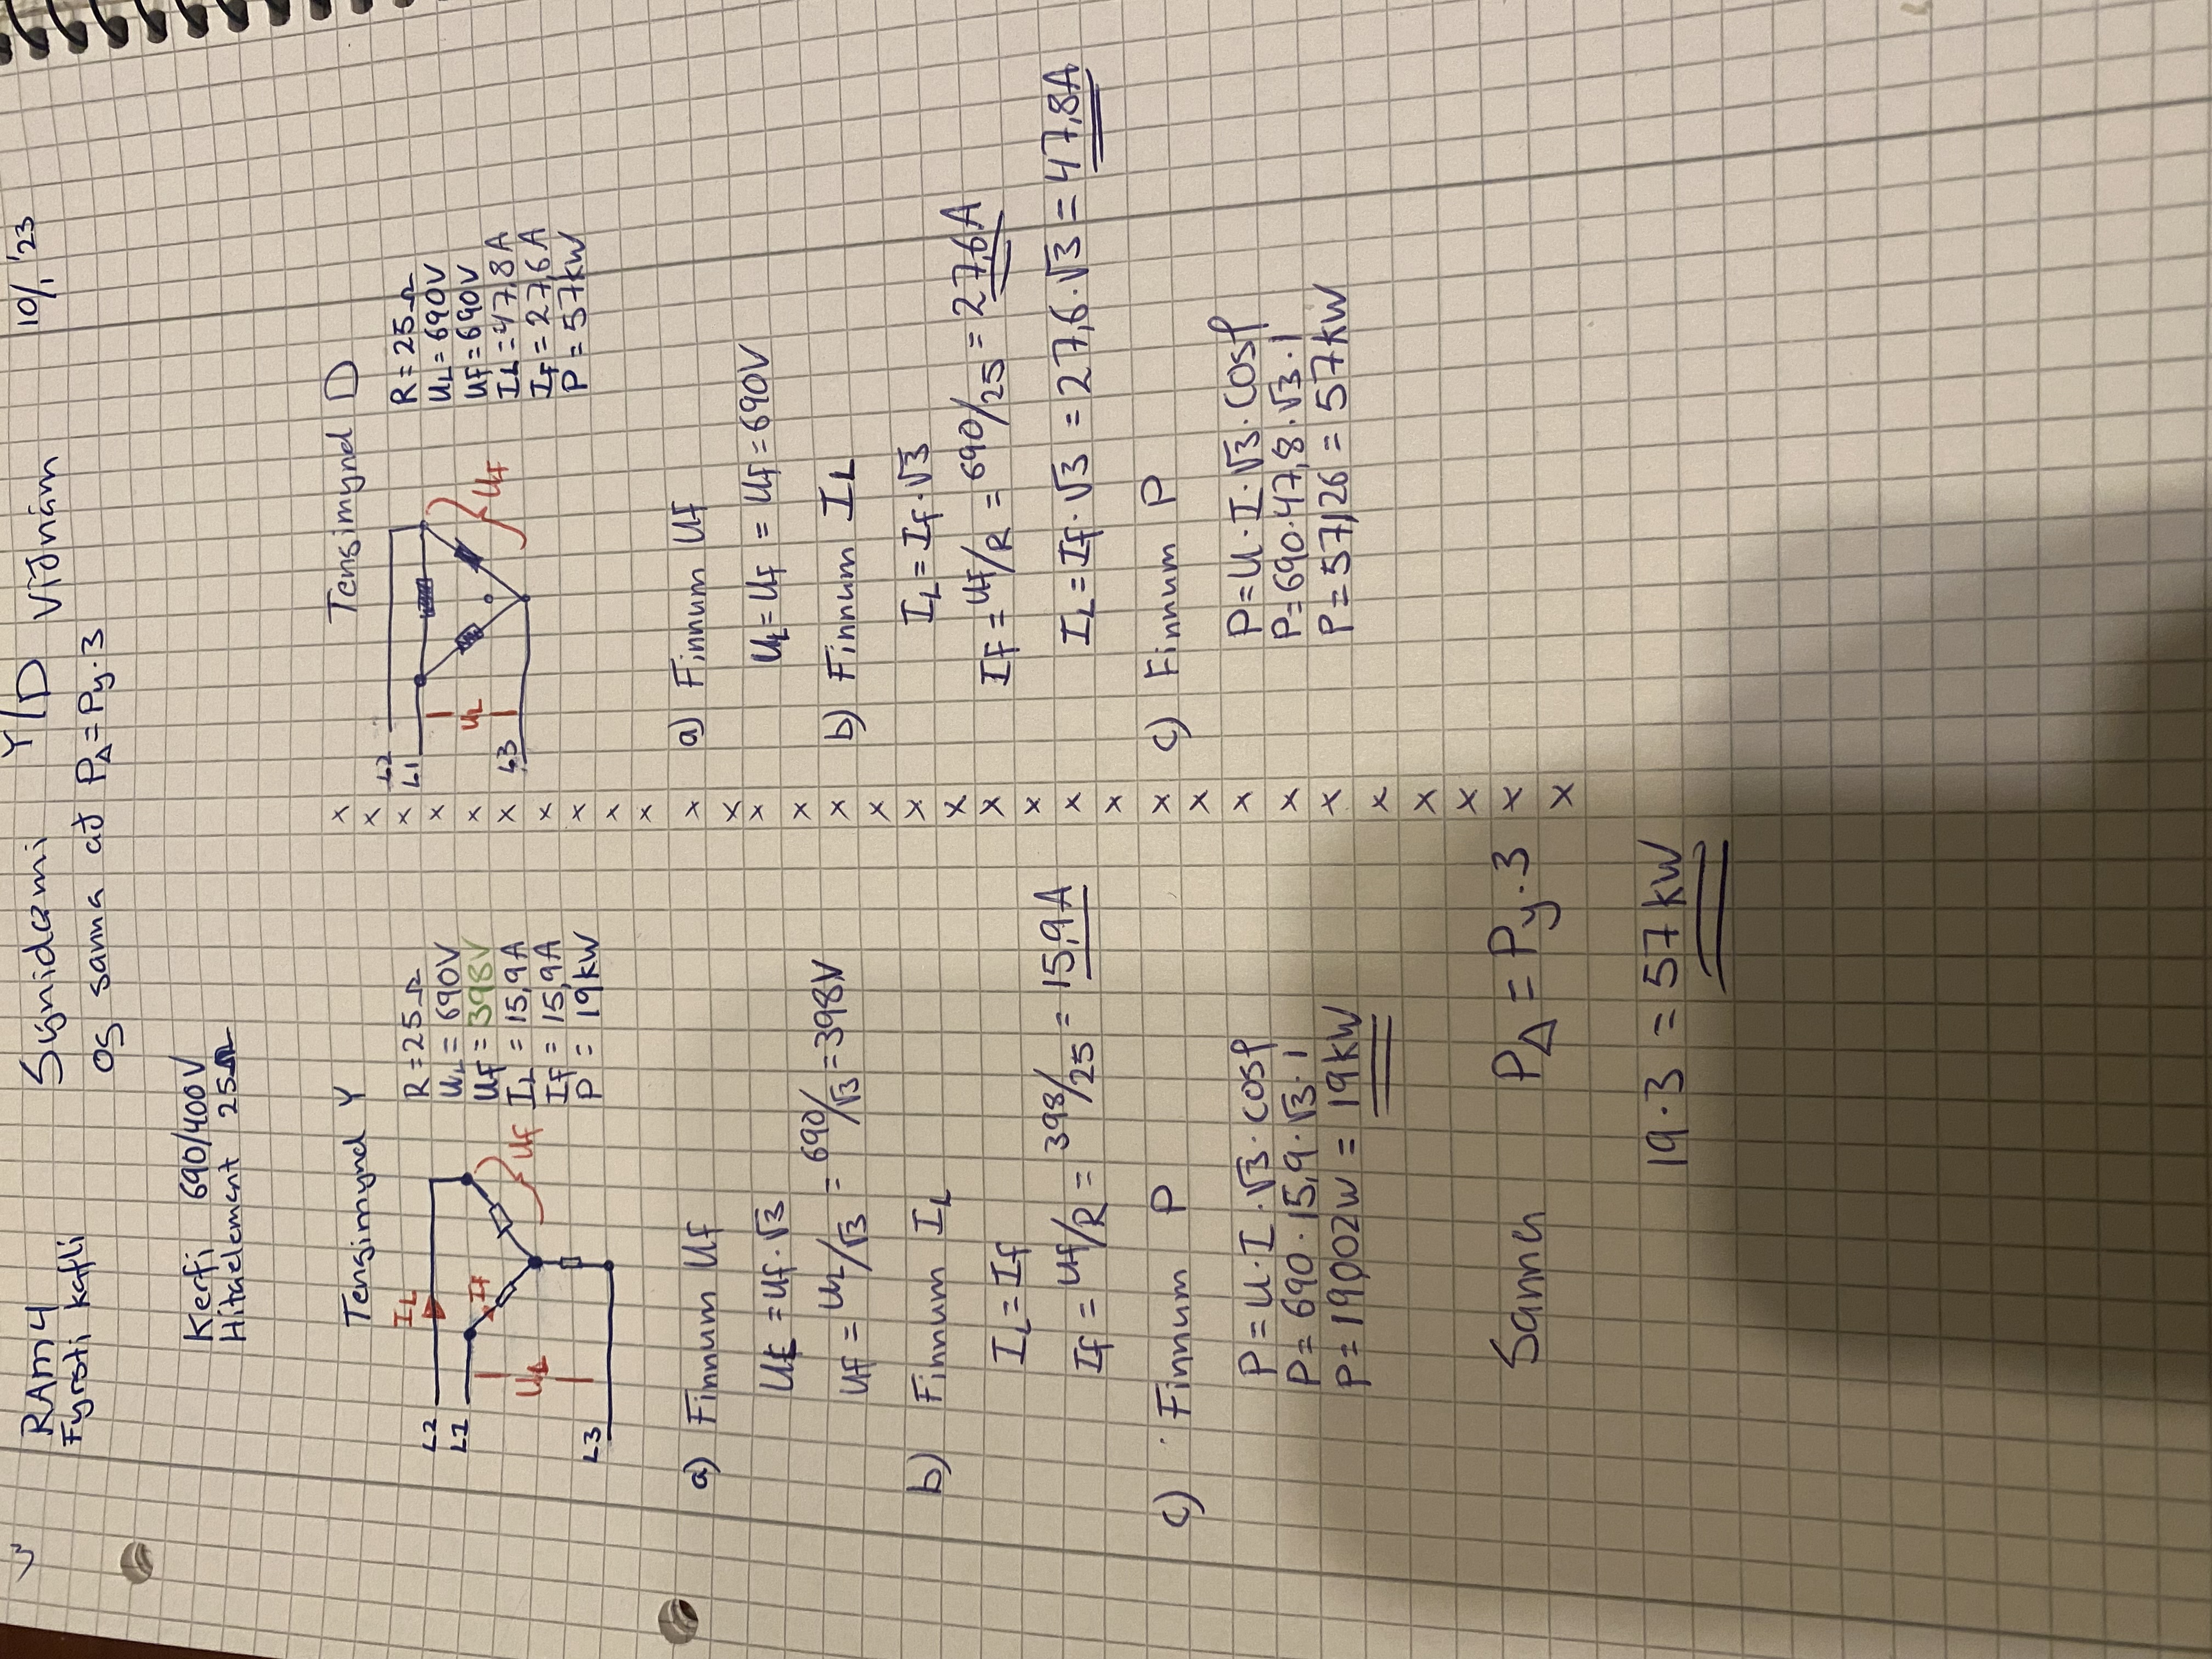 RAM4 Sýnidæmi Y/D Viðnám 10/1 '23
Fyrsti kafli og sanna að PΔ=Py·3
Kerfi 690/400V
Hitaelement 25Ω
Tengimynd Y
IL
L2
L1
L3
UL
IF
UF
R=25Ω
UL=690V
UF=398V
IL=15,9A
IF=15,9A
P=19kW
a) Finnum Uf
UL=Uf·√3
UF=UL/√3=690/√3=398V
b) Finnum IL
IL=If
If=Uf/R=398/25=15,9A
c) Finnum P
P=U·I·√3·cosφ
P=690·15,9·√3·1
P=19,002W=19kW
Sanna PΔ=Py·3
19·3=57kW
Tengimynd D
L2
L1
L3
UL
UF
R=25Ω
UL=690V
UF=690V
IL=47,8A
IF=27,6A
P=57kW
a) Finnum Uf
UL=Uf=Uf=690V
b) Finnum IL
IL=If·√3
IF=Uf/R=690/25=27,6A
IL=If·√3=27,6·√3=47,8A
c) Finnum P
P=U·I·√3·cosφ
P=690·47,8·√3·1
P=57126=57kW